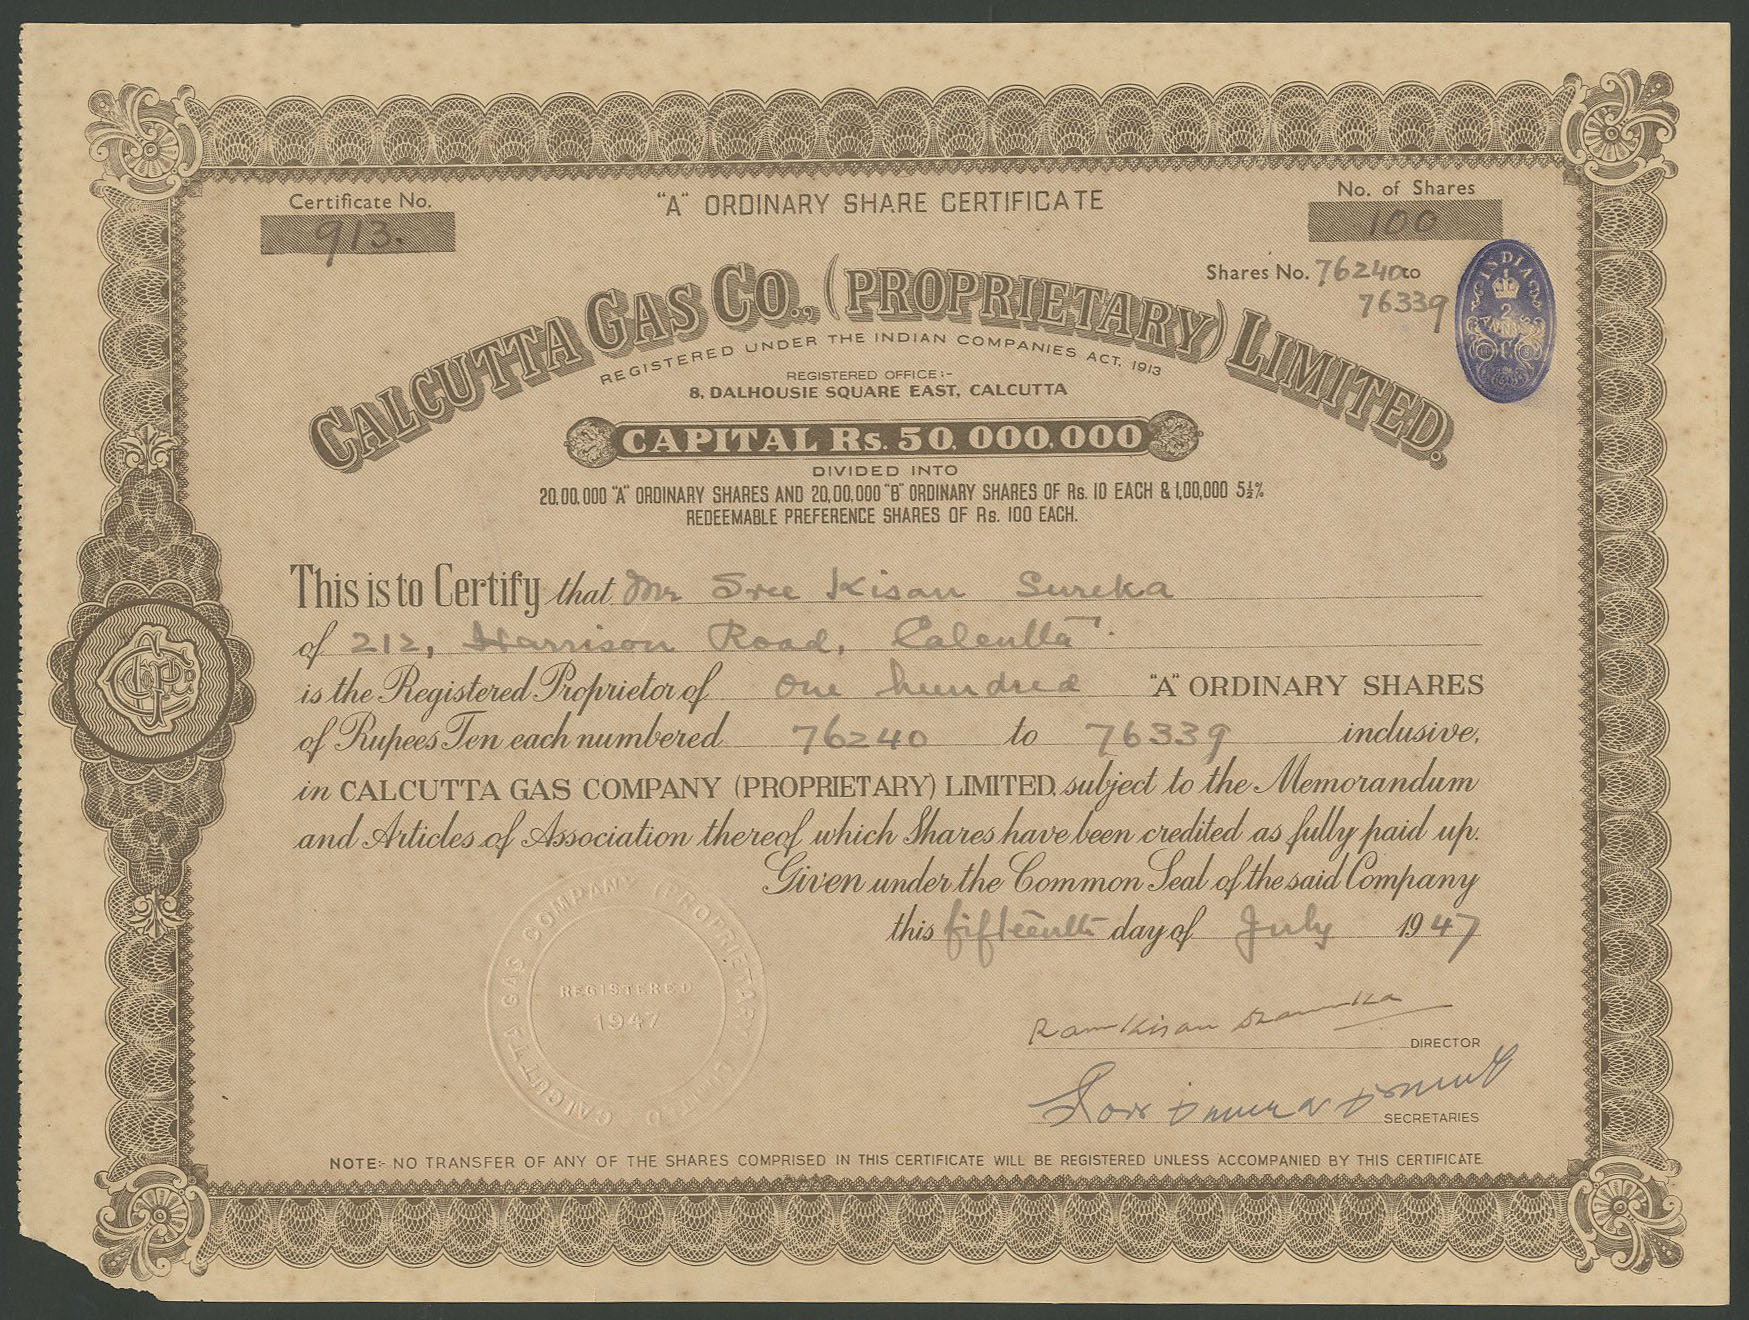 Certificate No.
913.
"A" ORDINARY SHARE CERTIFICATE
No. of Shares
100
Shares No. 76240 to
76339
INDIA
2
ANNAS
CALCUTTA GAS CO., (PROPRIETARY) LIMITED.
REGISTERED UNDER THE INDIAN COMPANIES ACT, 1913
REGISTERED OFFICE:-
8, DALHOUSIE SQUARE EAST, CALCUTTA
CAPITAL Rs. 50,000,000
DIVIDED INTO
20,00,000 "A" ORDINARY SHARES AND 20,00,000 "B" ORDINARY SHARES OF Rs. 10 EACH & 1,00,000 5½%
REDEEMABLE PREFERENCE SHARES OF Rs. 100 EACH.
This is to Certify that Mr Sree Kisan Sureka
of 212, Harrison Road, Calcutta.
is the Registered Proprietor of One hundred "A" ORDINARY SHARES
of Rupees Ten each numbered 76240 to 76339 inclusive,
in CALCUTTA GAS COMPANY (PROPRIETARY) LIMITED, subject to the Memorandum
and Articles of Association thereof which Shares have been credited as fully paid up.
Given under the Common Seal of the said Company
this fifteenth day of July 1947
CALCUTTA GAS COMPANY (PROPRIETARY) LIMITED
REGISTERED
1947
DIRECTOR
SECRETARIES
NOTE:- NO TRANSFER OF ANY OF THE SHARES COMPRISED IN THIS CERTIFICATE WILL BE REGISTERED UNLESS ACCOMPANIED BY THIS CERTIFICATE